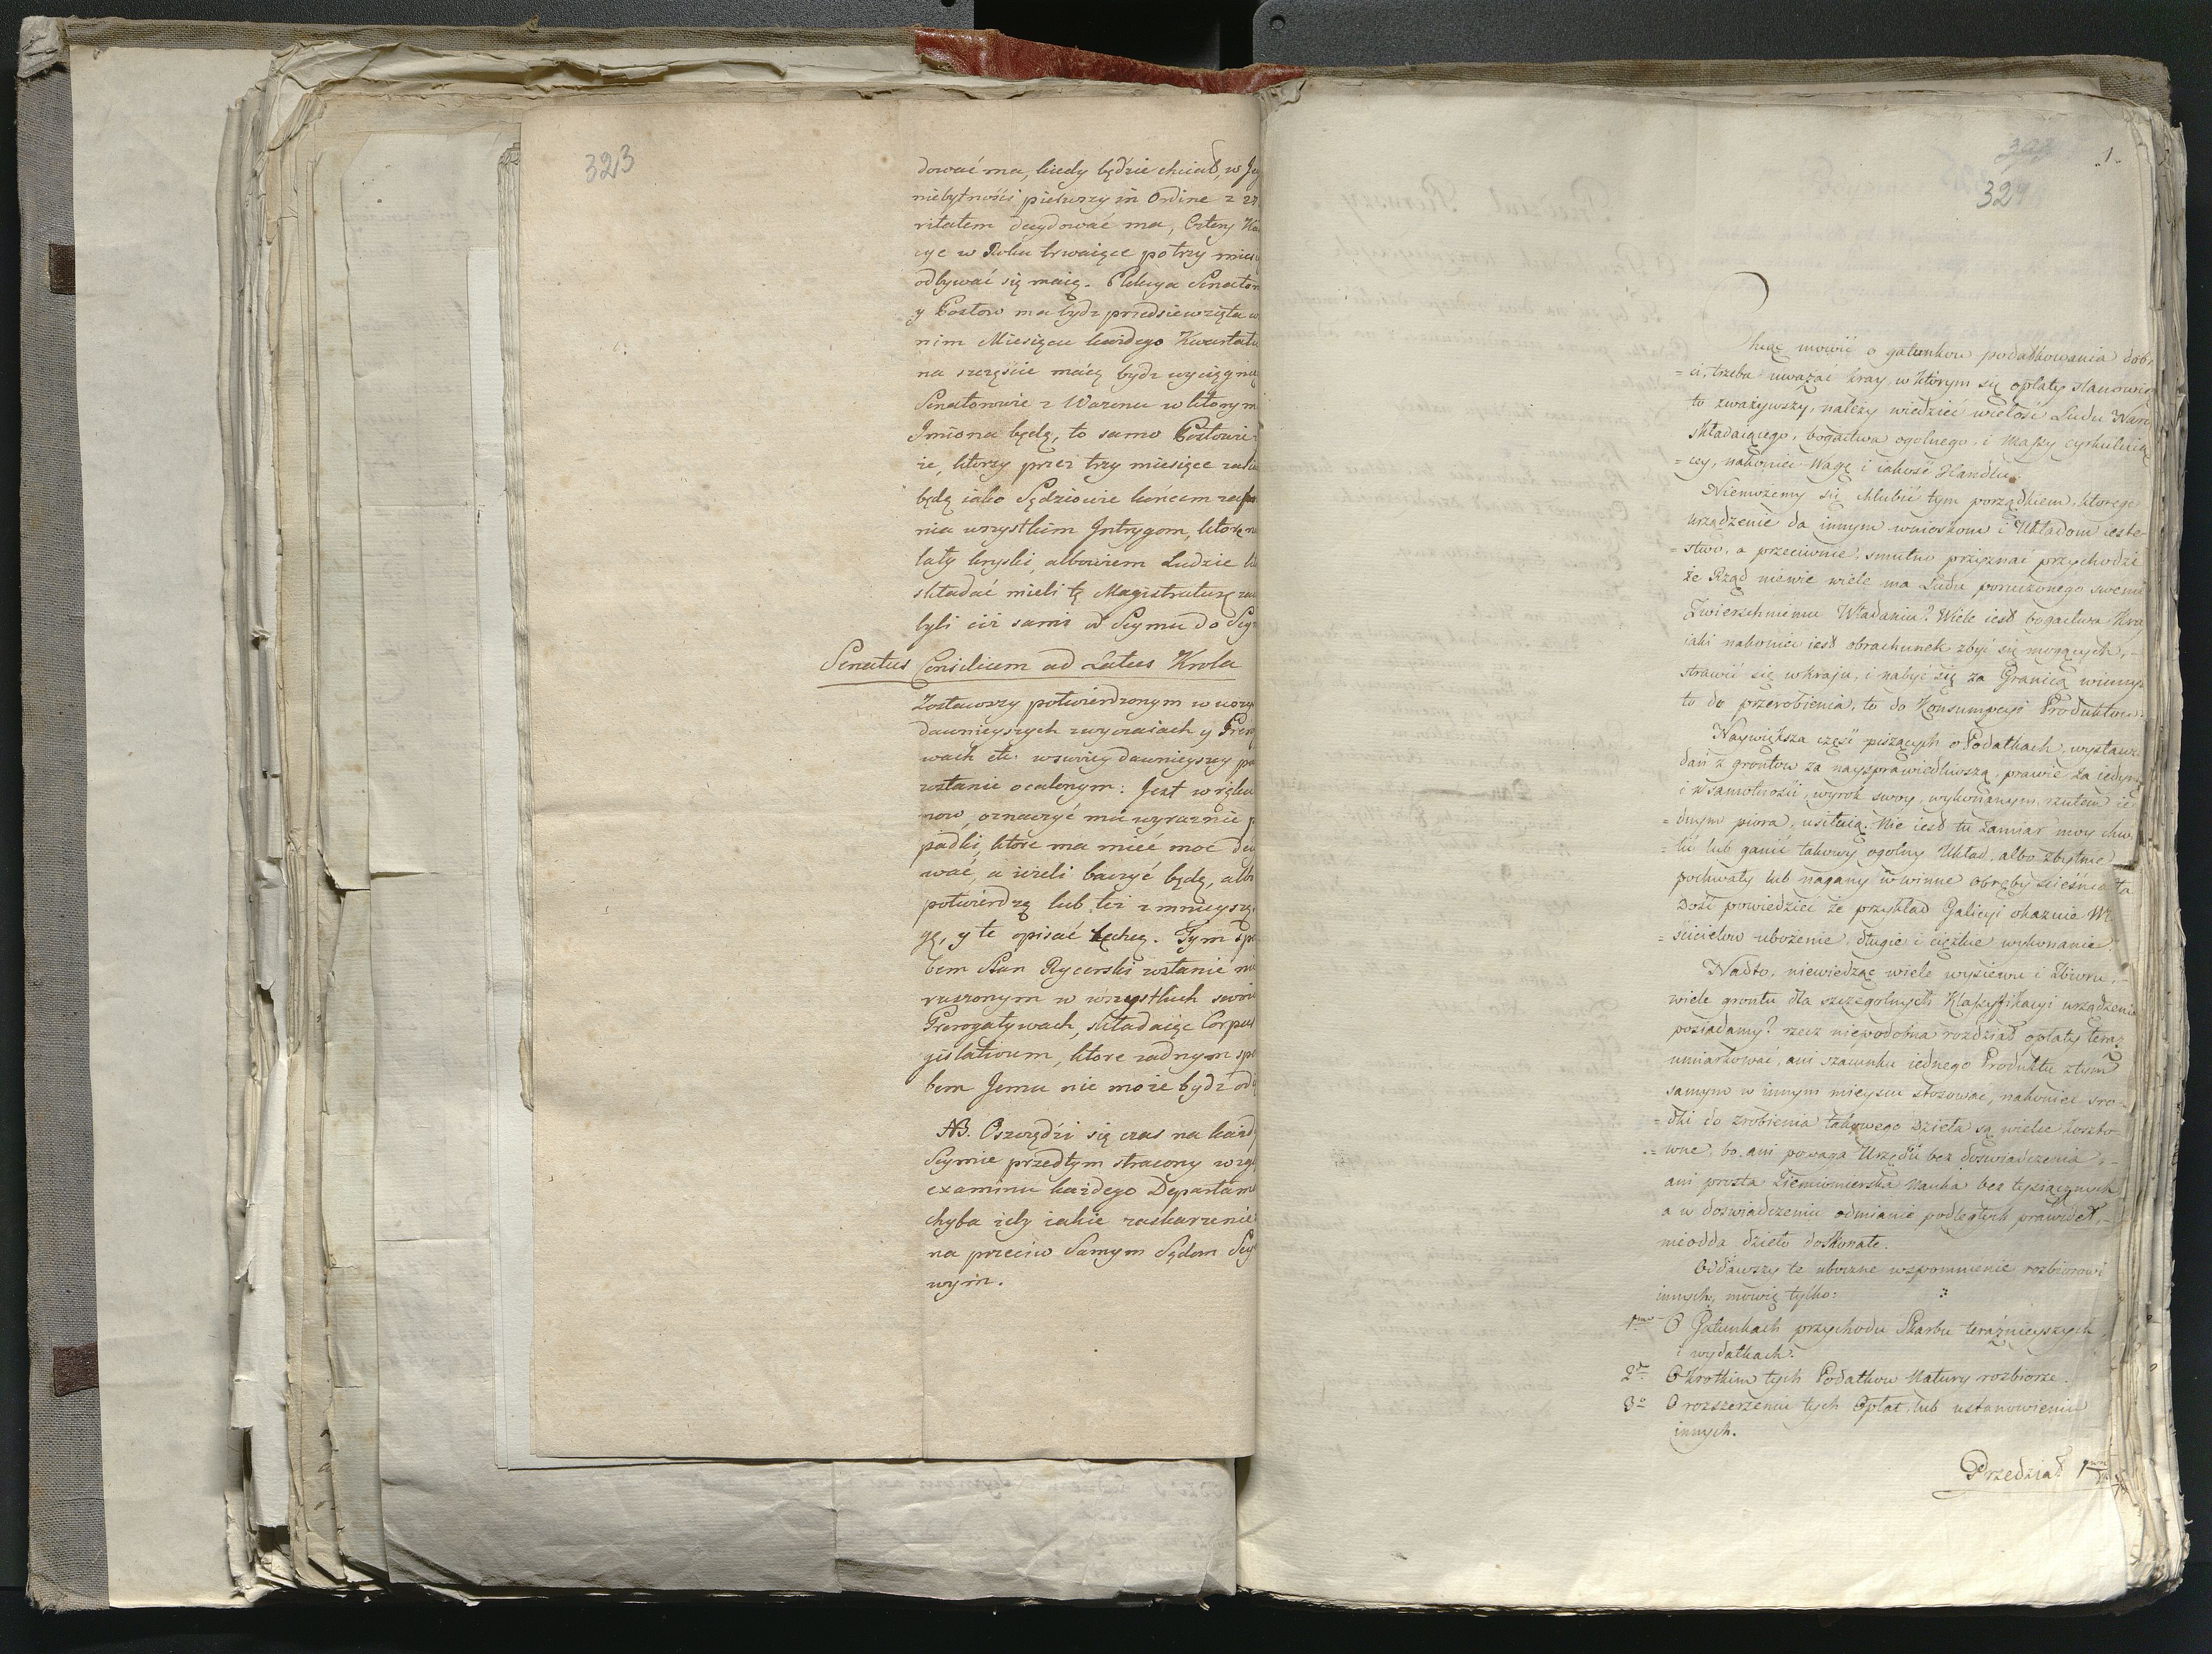 323
dować ma, kiedy będzie chciał, w Je
niebytności pierwszy in Ordine z
ritatem decydować ma, Cztery Ka
cye w Roku trwaiące po trzy mies
odbywać się maią. Elekcya Senator
y Posłow ma bydz przedsiewzięta w
nim Miesiącu każdego Kwartału
na szczęście maią bydz wyciągnię
Senatorowie z Wazonu w ktorym
Imiona będą, to samo Posłowie
że, ktorzy przez trzy miesiące zasia
będą iako Sędziowie końcem zapo
nia wszystkim Intrygom, ktore
były knyski, albowiem Ludzie
składać mieli tę Magistraturę
byli ciż sami od Seymu do Sey
Senatus Consilium ad Latus Krola
Zostawszy potwierdzonym w
dawnieyszych zwyczaiach y Prero
wach etc: w swoiey dawnieyszey
zostanie ocalonym: Jest w ręku
now, oznaczyć mu wyraznie
padki, ktore ma mieć moc decy
wać, a ieżeli baczyć będą, albo
potwierdzą lub też zmnieyszą
ią, y te opisać zechcą. Tym spo
bem Stan Rycerski zostanie nie
ruszonym w wszystkich swoi
Prerogatywach, składaiąc Corpus
gislativum, ktore żadnym spo
bem Jemu nie może bydz od
NB. Oszczędzi się czas na każd
Seymie przedtym stracony
examinu każdego Departam
chyba żeby iakie zaskarzenie
na przeciw Samym Sądom Sey
wym.
1
324
hcąc mowić o gatunkou podatkowania dobr
=ci, trzeba uważać kray, w ktorym się opłaty stanowią
to zważywszy, należy wiedzieć wielość Ludu Naro
składaiącego, bogactwa ogolnego, i Massy cyrkuluią
=cey, nakoniec Wagę i iakość Handlu.
Niemożemy się chlubić tym porządkiem, ktorego
urządzenie da innym wnioskom i Układom ieste
=stwo, a przeciwnie, smutno przyznać przychodzi
że Rząd niewie wiele ma Ludu poruczonego swemu
Zwierzchniemu Władaniu? Wiele iest bogactwa Kra
iaki nakoniec iest obrachunek zbyć się mogących,
strawić się w kraju, i nabyć się za Granicą winny
to do przerobienia, to do Konsumpcyi Produktow.
Naywiększa część piszących o Podatkach, wystawi
dań z gruntow za naysprawiedliwszą, prawie za iedyną
i w samotności, wyrok swoy, wykonanym rzutem ie
=dnym piora, usiłuią. Nie iest tu zamiar moy chwa
=lić lub ganić takowy ogolny Układ, albo zbytnie
pochwały lub nagany w winne obręby scieśnia ta
Dość powiedzieć że przykład Galicyi okazuie Wł
=ścicielow ubożenie, długie i ciężkie wykonanie.
Nadto, niewiedząc wiele wysiewu i Zbioru,
wiele gruntu dla szczegolnych Klassyfikacyi urządzenia
posiadamy? rzecz niepodobna rozdział opłaty temu
umiarkować, ani szacunku iednego Produktu z tym
samym w innym mieyscu stosować, nakoniec sro
=dki do zrobienia takowego dzieła są wielce koszto
=wne, bo, ani powaga Urzędu bez doswiadczenia,
ani prosta Ziemiomierska Nauka bez tysiącznych
a w doswiadczeniu odmianie podległych prawideł,
nieodda dzieło doskonałe.
Oddawszy te uboczne wspomnienie rozbiorowi
innych, mowię tylko:
1mo O Gatunkach przychodu Skarbu teraznieyszych
i wydatkach.
2do O krotkim tych Podatkow Natury rozbiorze.
3o O rozszerzeniu tych Opłat, lub ustanowieniu
innych.
Przedział 1wszy